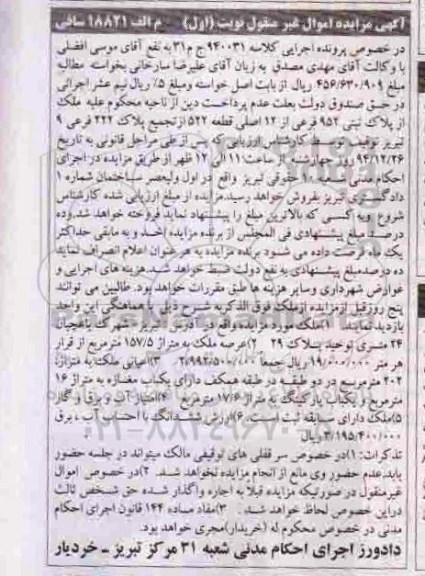 آگهی مزایده اموال غیر منقول نوبت (اول) م الف ۱۸۸۲۱ ساقی
در خصوص پرونده اجرایی کلاسه ۹۴۰۰۳۱ ج م ۳۱ به نفع آقای موسی افضلی
با وکالت آقای مهدی مصدق به زیان آقای علیرضا سارخانی بخواسته مطالبه
مبلغ ۴۵۶/۶۳۰/۹۰۹ ریال از بابت اصل خواسته ومبلغ ۵٪ ریال نیم عشر اجرائی
در حق صندوق دولت بعلت عدم پرداخت دین از ناحیه محکوم علیه ملک
از پلاک ثبتی ۹۵۲ فرعی از ۱۲ اصلی قطعه ۵۲۲ ازتجمیع پلاک ۲۲۲ فرعی ۹
تبریز توقیف توسط کارشناس ارزیابی که پس ازطی مراحل قانونی به تاریخ
۹۴/۱۲/۲۶ روز چهارشنبه از ساعت ۱۱ الی ۱۲ ظهر از طریق مزایده در اجرای
احکام مدنی حقوقی تبریز واقع در اول ولیعصر ساختمان شماره ۱
دادگستری تبریز بفروش خواهد رسید.مزایده از مبلغ ارزیابی شده کارشناس
شروع وبه کسی که بالاترین مبلغ را پیشنهاد نماید فروخته خواهد شد.وده
درصد مبلغ پیشنهادی فی المجلس از برنده مزایده اخذ و به مابقی حداکثر
یک ماه فرصت داده می شود برنده مزایده به هر عنوان اعلام انصراف نماید
ده درصدمبلغ پیشنهادی به نفع دولت ضبط خواهد شد.هزینه های اجرایی و
عوارض شهرداری وسایر هزینه ها طبق مقررات خواهد بود. طالبین می توانند
پنج روزقبل ازمزایده ازملک فوق الذکربه شرح ذیل با هماهنگی این واحد
بازدید نمایند ۱)ملک مورد مزایده واقع در آدرس تبریز- شهرک باغمیشه
۲۴ متری توحید پلاک ۲۹ ۲)عرصه ملک به متراژ ۱۵۷/۵ مترمربع از قرار
هر متر ۱۹/۰۰۰/۰۰۰ ریال جمعا ۲/۹۹۲/۵۰۰/۰۰۰ ۳)اعیانی ملک به متراژ
۲۰۲ مترمربع در دو طبقه در طبقه همکف دارای یکباب مغازه به متراژ ۱۶
مترمربع و یکباب پارکینگ به متراژ ۱۷/۶ مترمربع ۴)امتیاز آب و برق و گاز
۵)ملک دارای سابقه ثبت است ۶)ارزش ششدانگ با احتساب آب ، برق
۳/۱۹۵/۴۰۰/۰۰۰ ریال
تذکرات: ۱)در خصوص سر قفلی های توقیفی مالک میتواند در جلسه حضور
یابد.عدم حضور وی مانع از انجام مزایده نخواهد شد. ۲)در خصوص اموال
غیرمنقول در صورتیکه مزایده قبلاً به اجاره واگذار شده حق شخص ثالث
دراین خصوص لحاظ خواهد شد. ۳)مفاد ماده ۱۴۴ قانون اجرای احکام
مدنی در خصوص محکوم له (خریدار)مجری خواهد بود.
دادورز اجرای احکام مدنی شعبه ۳۱ مرکز تبریز ــ خردیار
۰۲۱-۸۸۳۴۹۶۷۰